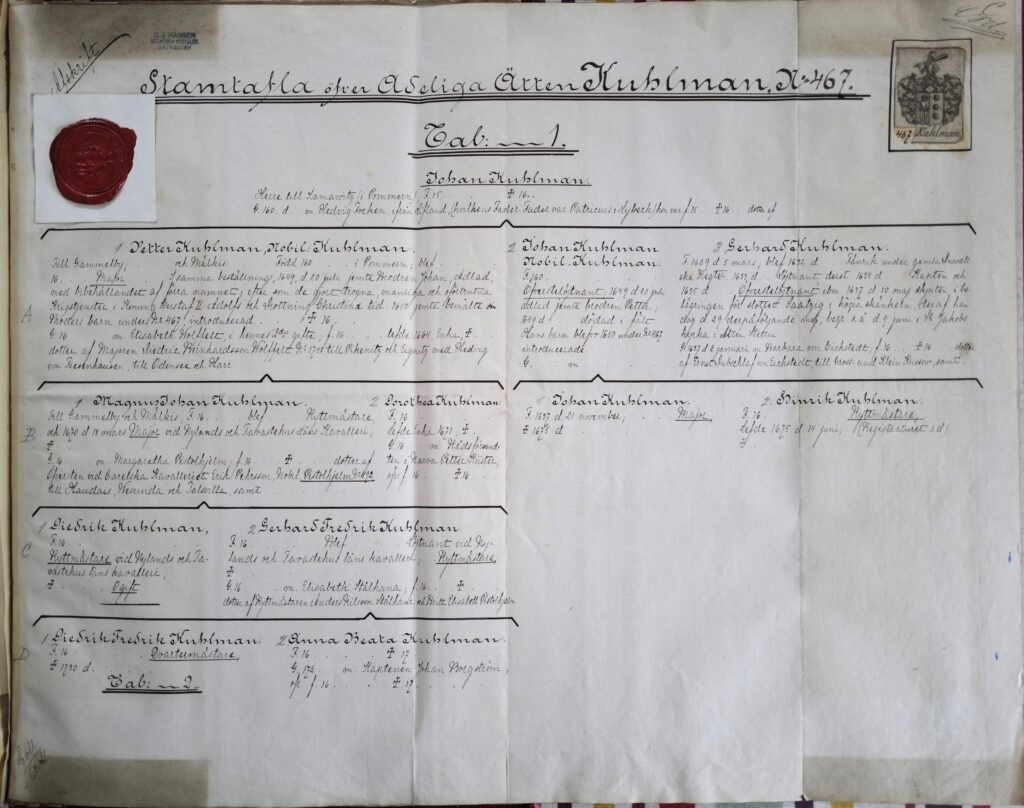 Afskrift
Stamtafla öfver Adeliga Ätten Kuhlman, No 467.
467 Kuhlman.
Tab: 1.
Johan Kuhlman.
Herre till (i Pommern) F. 15 . . ‡ 16 . .
G. 160. d. m. Hedvig från Lifland, (hvilkens Fader Fader var Patricius i Lybeck) hon var f. 15 . . ‡ 16 . . dotter af
A
1 Petter Kuhlman, Nobil: Kuhlman.
Till Gammelby, och Mälkis. Född 160 . . i Pommern, blef
16 . . Major . . I samma beställning, 1649, d. 20 juli jemte Brodren Johan, adlad,
med bibehållandet af förra namnet; efter som de gjort trogna, manliga och
Krigstjenster i Konung Gustaf II Adolfs och Drottning Christina tid. 1650 jemte bemälte
Broders barn under No 467, introducerad . . ‡ 16 . .
G. 16 m. Elisabeth Wolffelt, i hennes 2dra gifte, f. 16 . . lefde 1664 Enka, ‡
dotter af Majoren Fredric Wolffelt till och med Hedvig
von till Odensee och Karr
2 Johan Kuhlman
Nobil. Kuhlman.
F. 160 . .
Öfverstelöjtnant, 1649 d 20 juli
adlad jemte brodren Petter,
1649 d. dödad i fält
Hans barn blefvo 1650 under No 467
introducerade
G. . . m.
3 Gerhard Kuhlman.
F. 1609 d. 5 mars, blef 1632 d. Fänrik under gamla
ska 1633 d. Löjtnant derst 1634 d. Kapten och
1635 d. Öfverstelöjtnant dog 1637 d 10 maj skjuten i be-
lägringen för slottet Saatzig i högra skänkeln, deraf han
dog d. 29 derpåföljande maj, begr. s.å d 9 juni i St Jakobs
kyrka i Alten Stettin
G. 1637 d 2 januari m Barbara von Eichstedt, f. 16 . . ‡ 16 . . dotter
af Ernst von Eichstedt till Gross- und Klein samt
B
1 Magnus Johan Kuhlman.
Till Gammelby och Mälkis, F. 16 . . blef Ryttmästare,
och 1670 d 10 mars Major vid Nylands och Tavastehus läns Kavalleri,
‡ . .
G. 16 . . m. Margaretha Pistolhjelm, f. 16 . . ‡ . . dotter af
Öfversten vid Carelska Kavalleriet Erik Pehrsson, Nobil. Pistolhjelm
till och samt
2 Dorothea Kuhlman
F. 16 . .
Lefde Enka 1671, ‡
G. 16 m Rådsförvandten i Narva Petter
f. 16 . . ‡ 16 . .
1 Johan Kuhlman.
F. 1637 d. 21 november, Major
‡ 1675 d
2. Hinrik Kuhlman.
F. 16 . . Ryttmästare,
Lefde 1675 d. 14 juni, (Registraturet s.d)
‡
C
1 Diedrik Kuhlman,
F. 16 . .
Ryttmästare vid Nylands och Ta-
vastehus läns kavalleri,
‡ . . Ogift
2 Gerhard Fredrik Kuhlman.
F. 16 . . Blef Löjtnant vid Ny-
lands och Tavastehus läns kavalleri, Ryttmästare,
‡
G. 16 . . m. Elisabeth Stålhana, f. 16 . . ‡
dotter af Ryttmästaren Anders Nilsson Stålhana och Brita Elisabeth Pistolhjelm
D
1 Diedrik Fredrik Kuhlman.
F. 16 . . Qvartermästare,
‡ 1730 d.
Tab: 2.
2 Anna Beata Kuhlman.
F. 16 . . ‡ 17 . .
G. 172 . . m. Kaptenen Johan Borgström,
f. 16 . . ‡ 17 . .